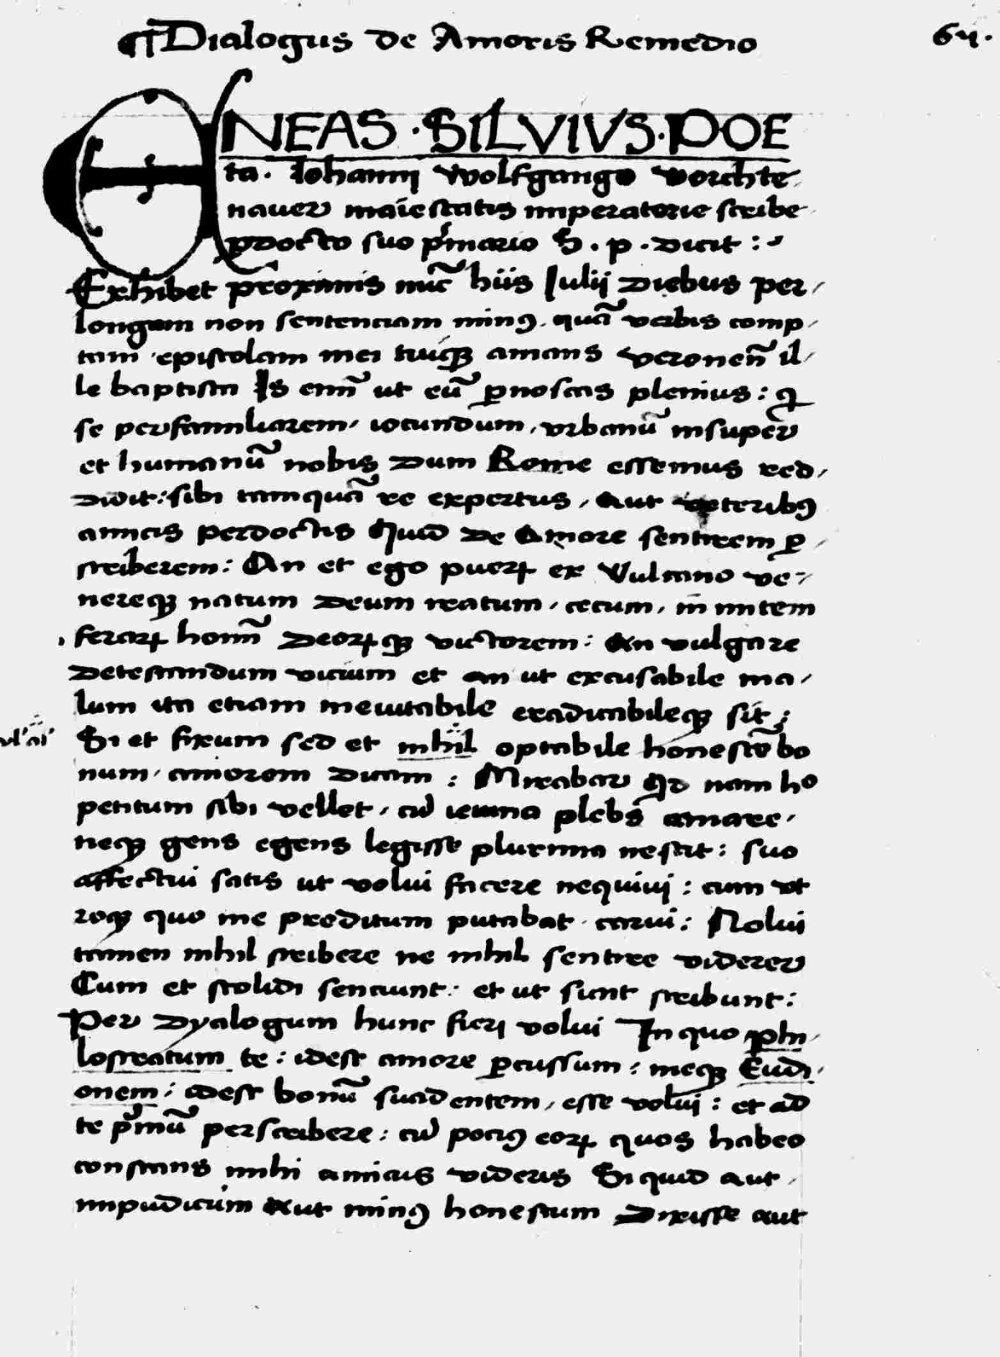 ¶ Dialogus de Amoris Remedio 64.
ENEAS · SILVIVS · POE
ta. Iohanni Wolfgango vorchte
nauer maiestatis imperatorie scribe
ꝓdocto suo pͥmario S. p. dicit :
Exhibet proximis nuc̄ hiis Iulij diebus per,
longam non sentenciam minꝰ. quā verbis comp,
tam epistolam mei tuiqꝫ amans veronen̄ il,
le baptista Is enī ut eū ꝑnoscas plenius: qͥ
se perfamiliarem, iocundum, vrbanū insuper
et humanū nobis dum Rome essemus red,
didit: sibi tamquā re expertus, aut veteribꝰ
amicis perdoctis quid de Amore sentirem ꝑ,
scriberem: An et ego pueꝝ ex Vulcano ve-
nereqꝫ natum deum reatum, cecum, in mitem
feraꝝ homī deoꝝqꝫ victorem: An vulgare
detestandum vicium et an ut excusabile ma,
lum ita etiam ineuitabile eradicabileqꝫ sit;
vl' ai' Si et fixum sed et nihil optabile honestū bo
num, amorem dicam: Mirabar qd nam ho
petitum sibi vellet, cū ieiuna plebs amare,
neqꝫ gens egens legisse plurima nescit: suo
affectui satis ut volui facere nequiui: cum vt
roqꝫ quo me preditum putabat carui: Nolui
tamen nihil scribere ne nihil sentire viderer
Cum et stolidi senciunt: et ut sciunt scribunt:
Per dyalogum hunc fieri volui In quo phi,
lostratum te: idest amore ꝑcussum: meqꝫ Eudi,
onem: idest bonū suadentem, esse volui: et ad
te pͥmū perscribere: cū pociꝰ eoꝝ quos habeo
constans mihi amicus videris Si quid aut,
impudicum Aut minꝰ honestum dixisse aut